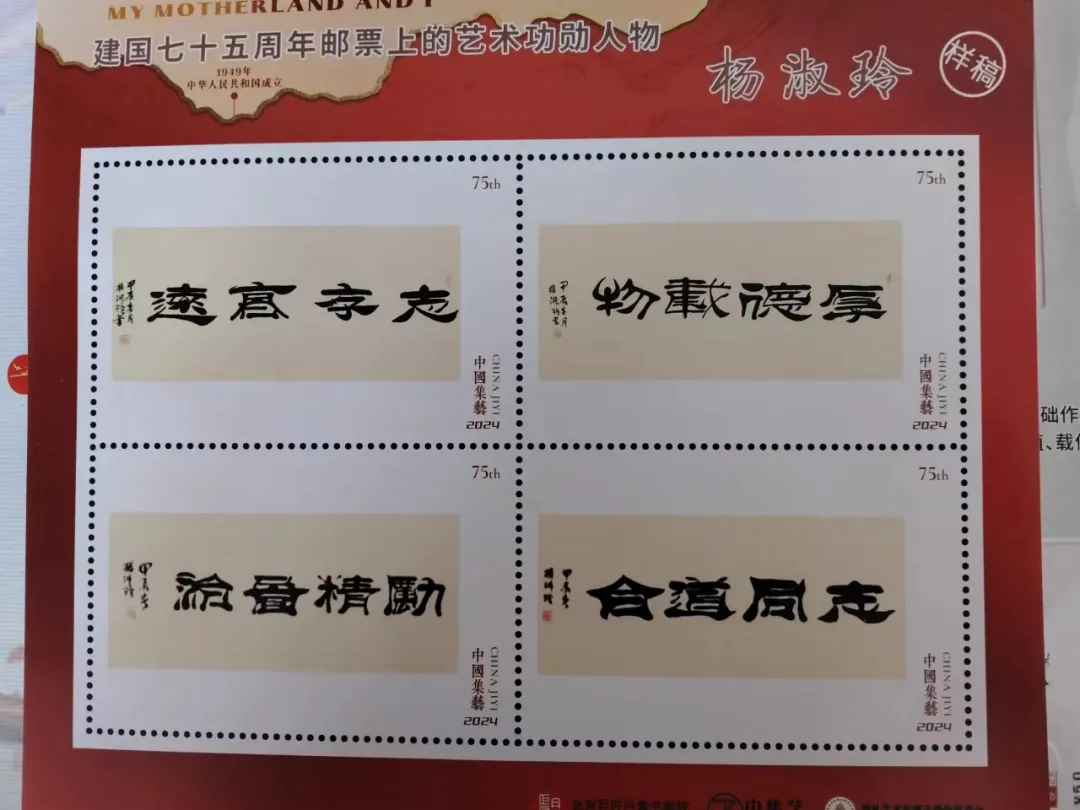 MY MOTHERLAND AND I
建国七十五周年邮票上的艺术功勋人物
1949年
中华人民共和国成立
杨淑玲
样稿
75th
志存高遠
甲辰春月
楊淑玲書
中國集藝
CHINA JIYI
2024
75th
厚德載物
甲辰春月
楊淑玲書
中國集藝
CHINA JIYI
2024
75th
勵精圖治
甲辰春
楊淑玲
中國集藝
CHINA JIYI
2024
75th
志同道合
甲辰春
楊淑玲
中國集藝
CHINA JIYI
2024
础作
、载